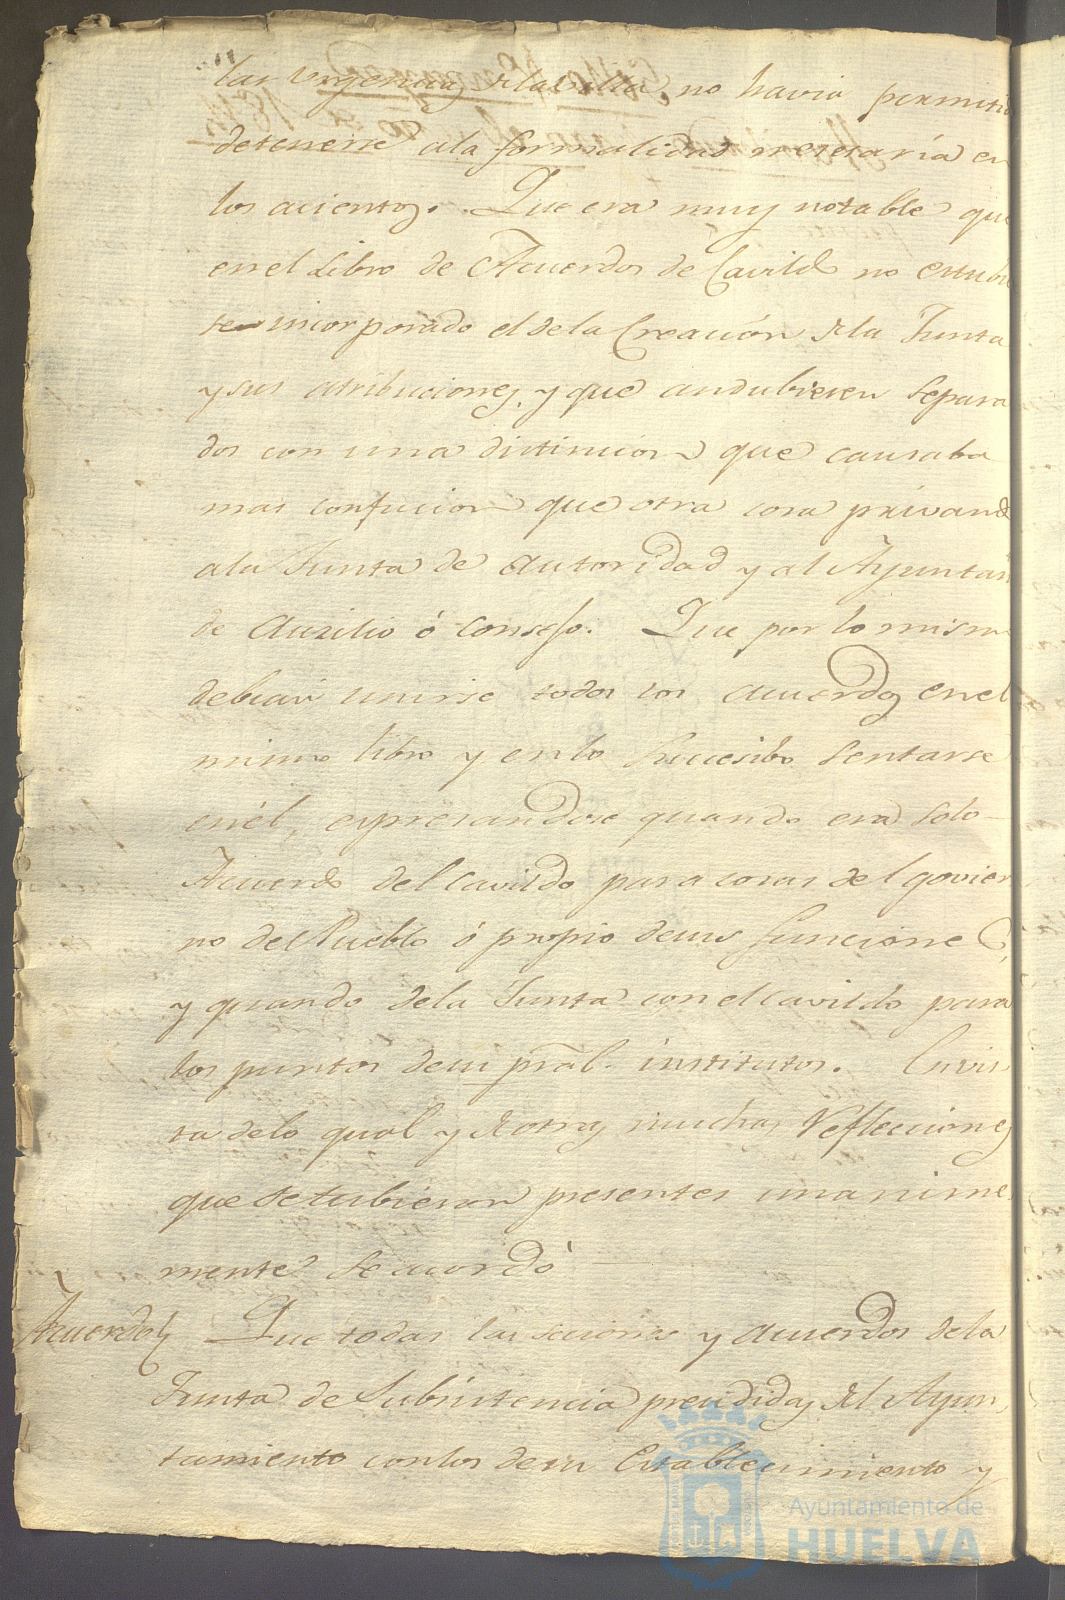 las Urgencias de la Villa no havia permitido
detenerse ala formalidad necesaria en
los acientos. Que era muy notable que
en el Libro de Acuerdos de Cavildo no estubie
se incorporado el dela Creación de la Junta
y sus atribuciones, y que andubiesen separa
dos con una distincion que causaba
mas confucion que otra cosa privando
ala Junta de autoridad y al Ayuntam
de Auxilio ó consejo. Que por lo mismo
debian unirse todos los acuerdos en el
mismo libro y en lo succesibo sentarse
en él, expresandose quando era solo
Acuerdo del cavildo para cosas del govier
no del Pueblo ó propio de sus funciones,
y quando dela Junta con el cavildo para
los puntos de su pral. institutos. En vis
ta delo qual y de otras muchas Reflecciones
que se tubieron presentes unanime
mente se acordó
Acuerdo Que todas las seciones y acuerdos de la
Junta de Subsistencia presididas del Ayun
tamiento con los de su Establecimiento y
Ayuntamiento de
HUELVA